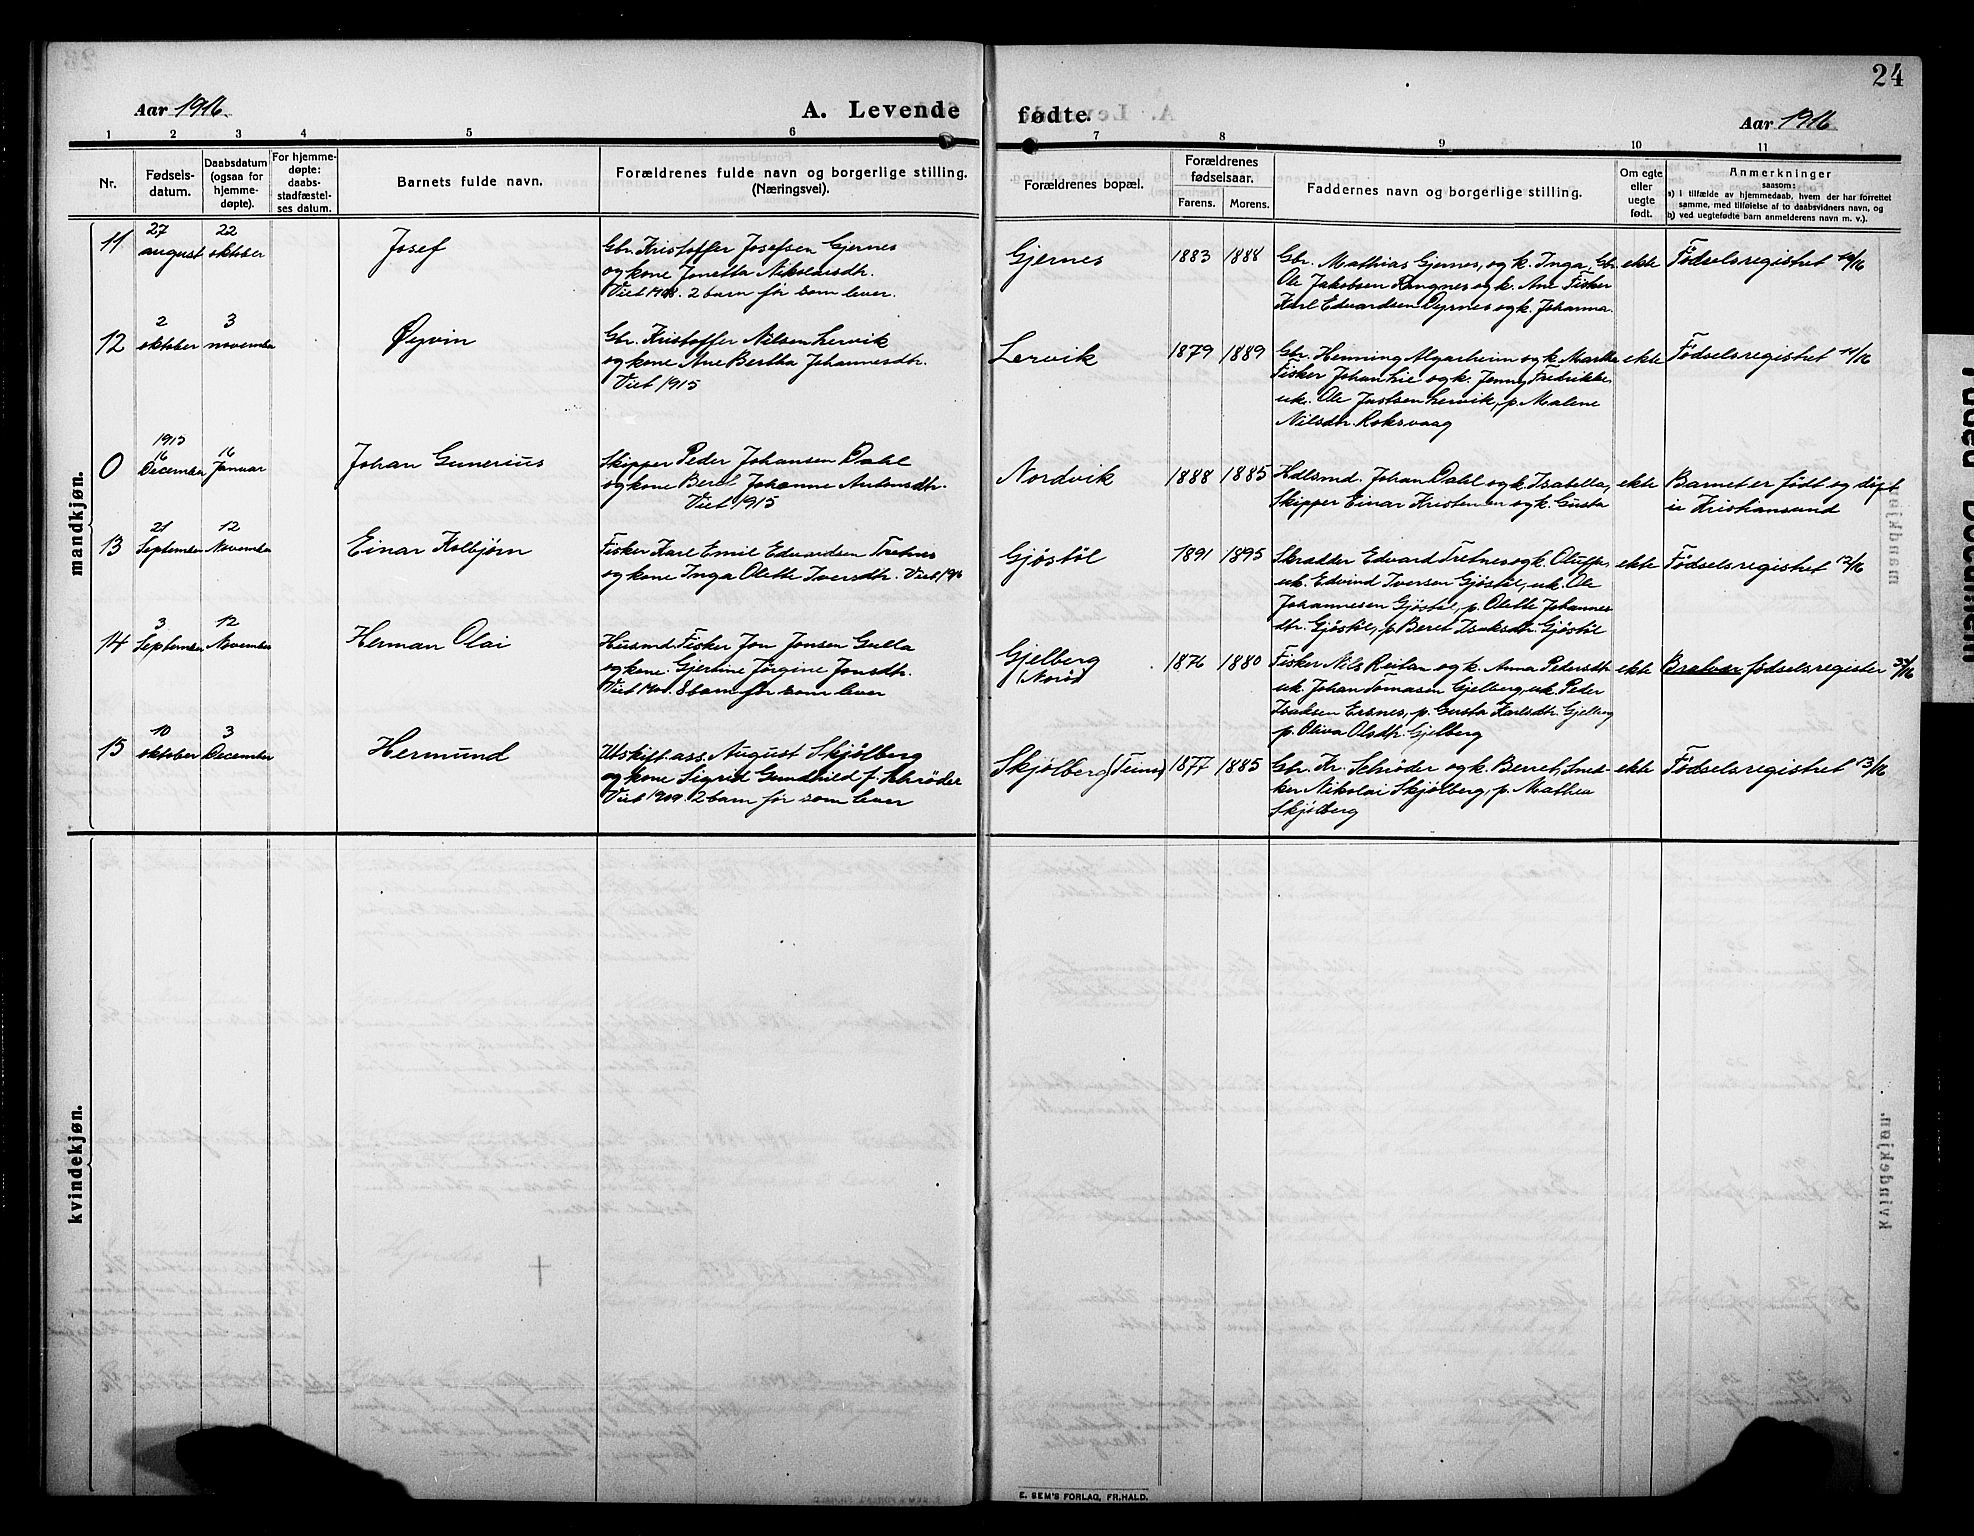 24
Aar 1916
A. Levende fødte.
Aar 1916
1 2 3 4 5 6 7 8 9 10 11
Nr.
Fødsels-
datum.
Daabsdatum
(ogsaa for
hjemme-
døpte).
For hjemme-
døpte:
daabs-
stadfæstel-
ses datum.
Barnets fulde navn.
Forældrenes fulde navn og borgerlige stilling.
(Næringsvei).
Forældrenes bopæl.
Forældrenes
fødselsaar.
Farens. Morens.
Faddernes navn og borgerlige stilling.
Om egte
eller
uegte
født.
Anmerkninger
saasom:
a) i tilfælde av hjemmedaab, hvem der har forrettet
samme, med tilføielse af to daabsvidners navn, og
b) ved uegtefødte barn anmelderens navn m. v.).
mandkjøn.
11
27
august
22
oktober
Josef
Gbr. Kristoffer Josefsen Gjernes
og kone Jonetta Nikolaisdtr.
Viet 1908. 2 barn før som lever.
Gjernes
1883 1888
Gbr. Mathias Gjernes, og k. Inga, Gbr.
Ole Jakobsen Ringnes og k. Ane Fisker
Karl Edvardsen Dyrnes og k. Johanna.
ekte
Fødselsregistret 10/16
12
2
oktober
3
november
Øyvin
Gbr. Kristoffer Nilsen Lervik
og kone Ane Bertha Johannesdtr.
Viet 1915
Lervik
1879 1889
Gbr. Henning Algarheim og k. Martha
Fisker Johan Lie og k. Jenny Fredrikke,
uk. Ole Lervik, p. Malene
Nilsdtr. Roksvaag
ekte
Fødselsregistret 11/16
0
1915
16
December
16
Januar
Johan Gunerius
Skipper Peder Johansen Dahl
og kone Beret Johanne Antonsdtr.
Viet 1915
Nordvik
1888 1885
Hdlsmd. Johan Dahl og k. Isabella,
Skipper Einar Kristensen og k. Gusta
ekte
Barnet er født og døpt
i Kristiansund
13
21
September
12
November
Einar Kolbjørn
Fisker Karl Emil Edvardsen Tretnes
og kone Inga Olette Iversdtr. Viet 1916
Gjøstøl
1891 1895
Skrædder Edvard Tretnes og k. Oluffa,
uk. Edvind Iversen Gjøstøl, uk. Ole
Johannesen Gjøstøl, p. Olette Johannes
dtr. Gjøstøl, p. Beret Isaksdtr. Gjøstøl
ekte
Fødselsregistret 12/16
14
3
September
12
November
Herman Olai
Husmd. Fisker Jon Jonsen Gulla
og kone Gjertine Jørgine Jonsdtr.
Viet 1901. 8 barn før som lever
Gjelberg
1876 1880
Fisker Nils Reitan og k. Anna Pedersdtr
uk. Johan Tomasen Gjelberg, uk. Peder
Isaksen Ersnes, p. Gusta Karlsdtr. Gjelberg
p. Oliva Olsdtr. Gjelberg
ekte
Bratvær fødselsregister
15
10
oktober
3
December
Hermund
Utskift. ass. August Skjølberg
og kone Sigrid Gundhild f. Schrøder
Viet 1909. 2 barn før som lever
Skjølberg
1877 1885
Gbr. Kr. Schrøder og k. Berret, Sned-
ker Nikolai Skjølberg, p. Mathea
Skjølberg
ekte
Fødselsregistret 13/16
kvindekjøn.
E. SEM'S FORLAG, FR.HALD.